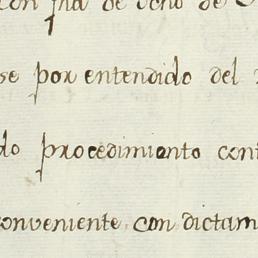 con fha de ocho de
se por entendido del
do procedimiento cont
conveniente con dictam